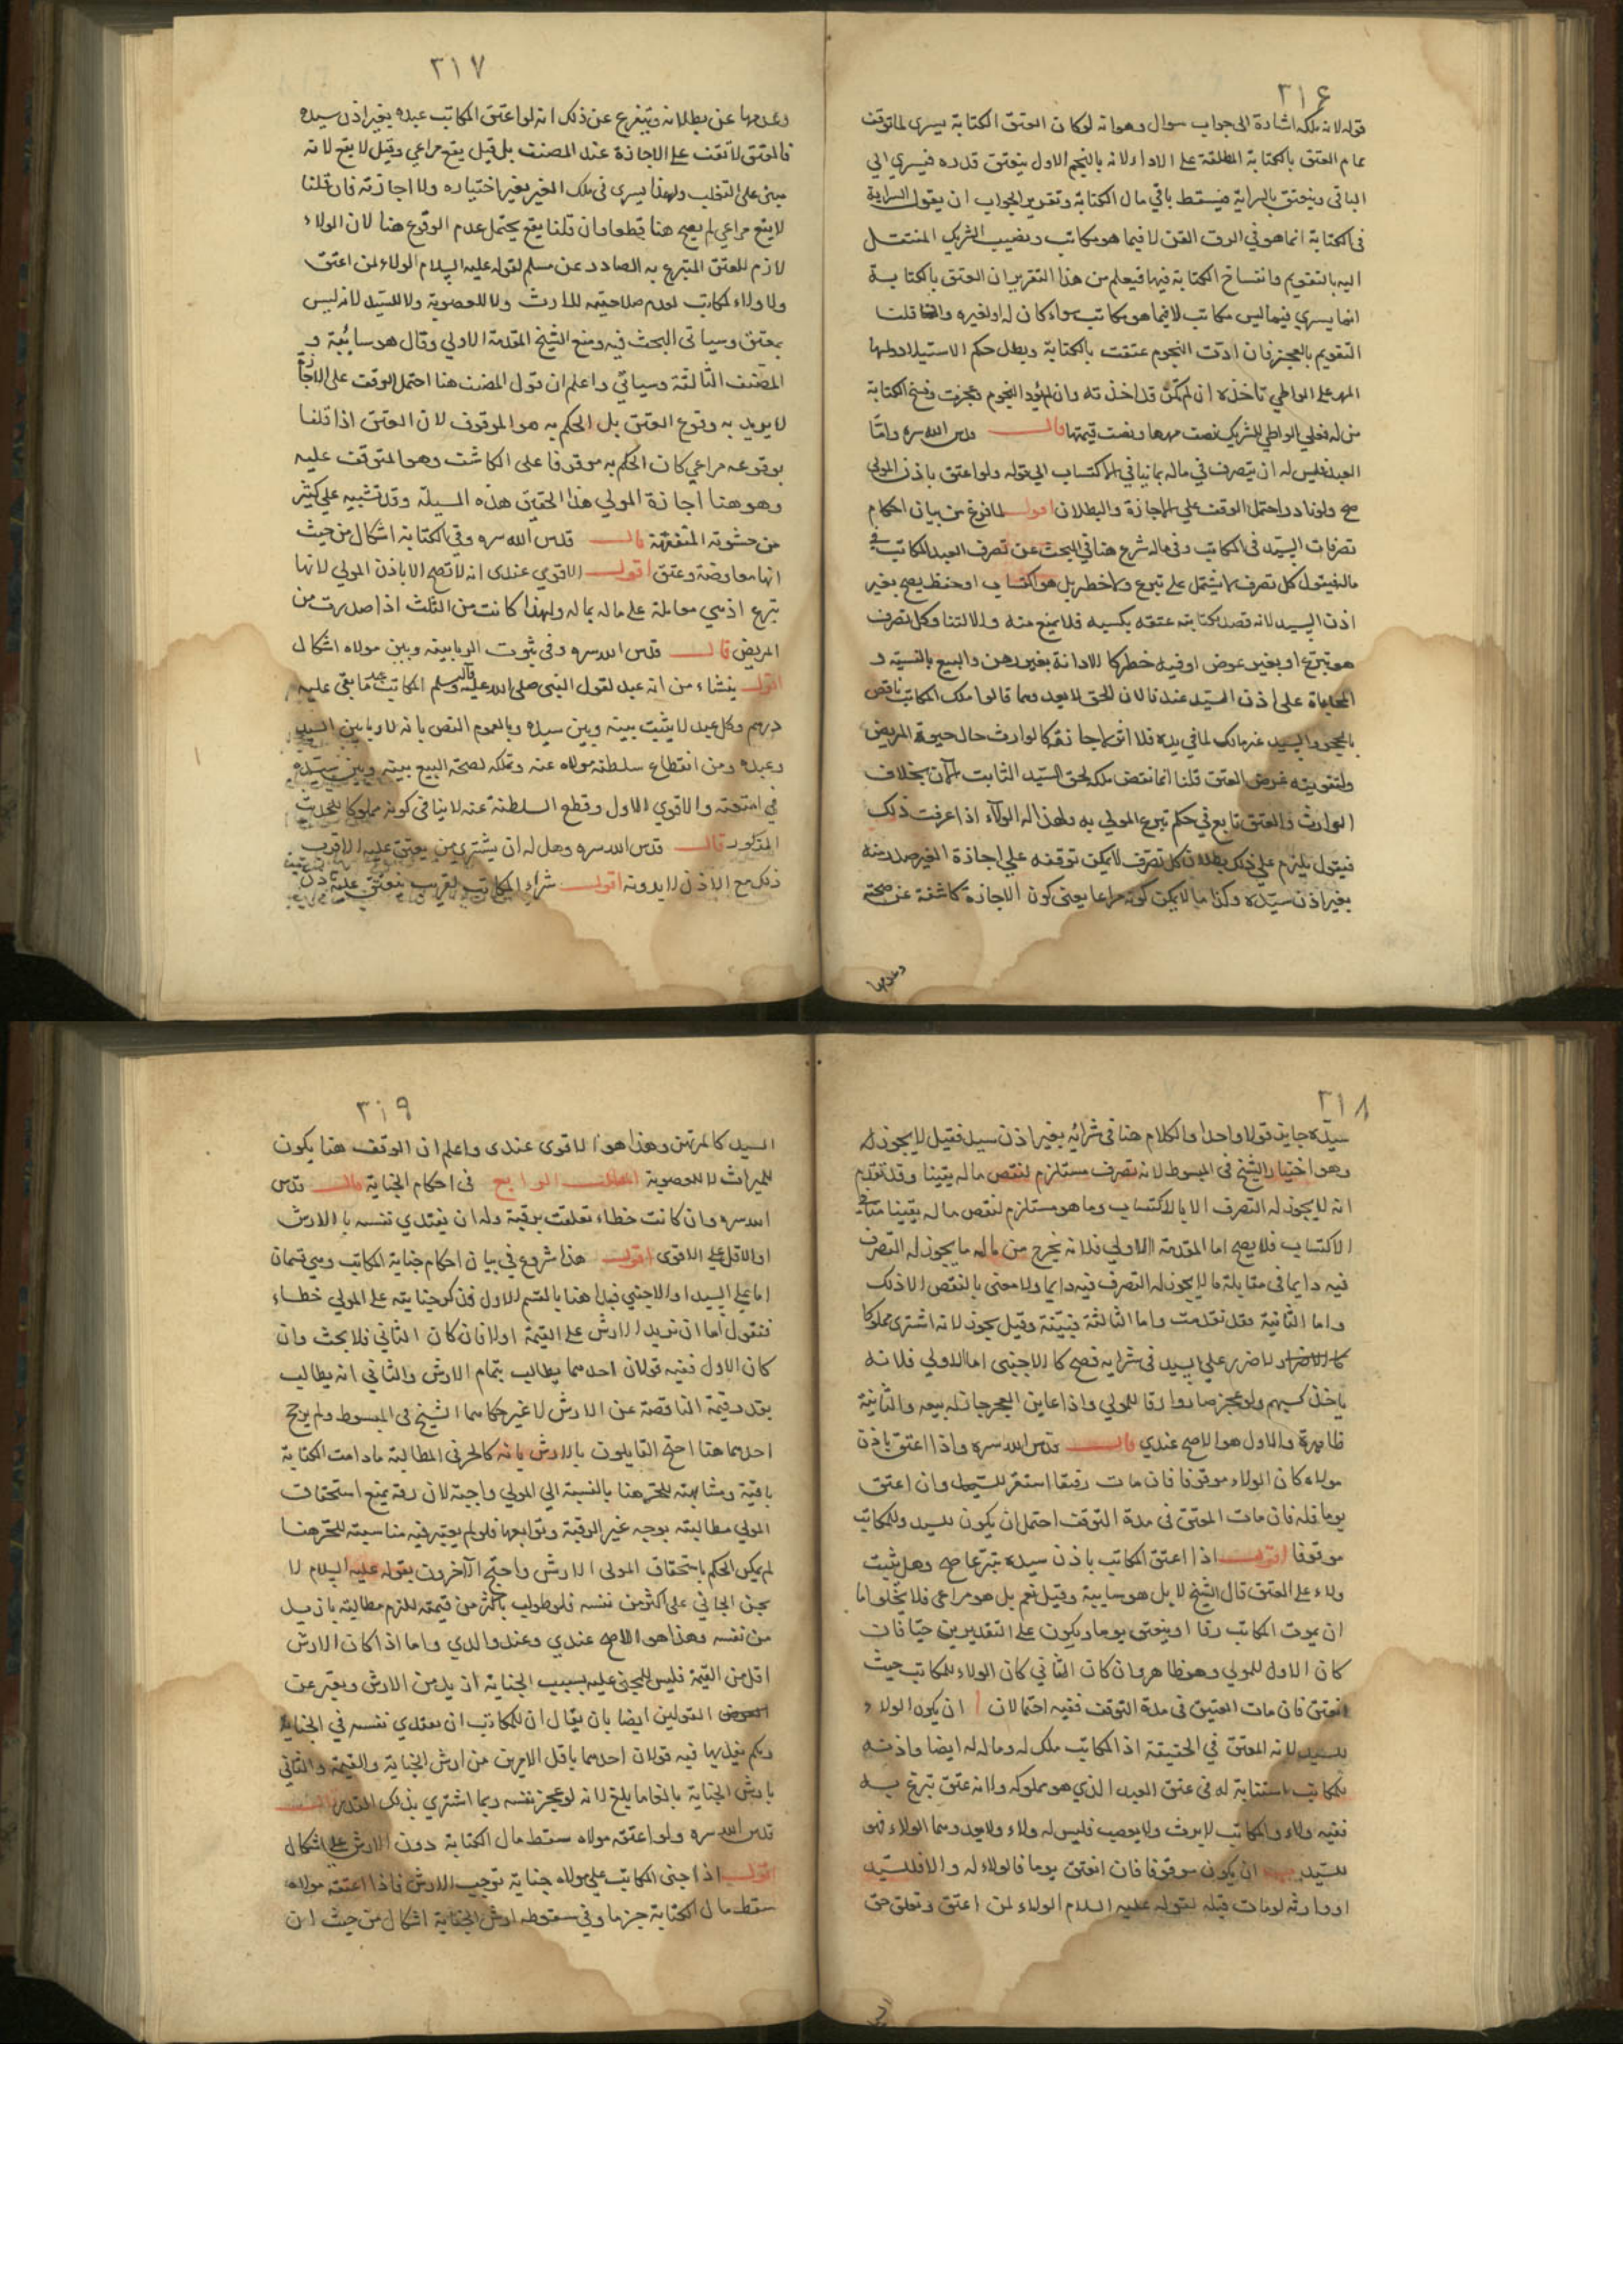 ٣١٦
قوله لانه ملكه اشارة الى جواب سوال وهو انه لو كان العتق الكتابة يسرى لما توقف
تمام العتق بالكتابة المطلقة على الاداء لانه بالنجم الاول ينعتق قدره فيسري الي
الباقي وينعتق بالسراية فيسقط باقي مال الكتابة وتقرير الجواب ان يقول السراية
في الكتابة انما هو في الرق القن لا فيما هو مكاتب ونصيب الشريك المنتقل
اليه بالتقويم وانفساخ الكتابة فيها فيعلم من هذا التقرير ان العتق بالكتابة
انما يسري فيما ليس مكاتب لا فيما هو مكاتب سواء كان له او لغيره وانما قلنا
التقويم بالعجز فان ادت النجوم عتقت بالكتابة وبطل حكم الاستيلاد ولها
المهر على الواطي تاخذه ان لم تكن قد اخذته وان لم تؤد النجوم وعجزت وفسخ الكتابة
من له فعلي الواطي للشريك نصف مهرها ونصف قيمتها قال قدس الله سره واما
العبد فليس له ان يتصرف في ماله بما ينافي الاكتساب الي قوله ولو اعتق باذن المولي
صح ولو بادر احتمل الوقف علي الاجازة والبطلان اقول لما فرغ من بيان احكام
تصرفات السيد في المكاتب وفي ماله شرع هنا في البحث عن تصرف العبد المكاتب في
ماله فيقول كل تصرف لا يشتمل على تبرع ولا خطر بل هو اكتساب او حفظ يصح بغير
اذن السيد لانه قصد بكتابته عتقه بكسبه فلا يمنع منه والا لتنا وكل تصرف
هو تبرع او بغير عوض او فيه خطر كالادانة بغير رهن والبيع بالنسية و
المحاباة على اذن السيد عندنا لان للحق لا يعد وهما قالوا ملك المكاتب ناقص
بالحجر والسيد غير مالك لما في يده فلا اثر لاجازته كالوارث حال حيوة المريض
ولتفويته غرض العتق قلنا انما نقض ملكه لحق السيد الثابت الآن بخلاف
الوارث والعتق تابع في حكم تبرع المولي به ولهذا له الولاء اذا عرفت ذلك
فيقول يلزم علي ذلك بطلان كل تصرف لا يمكن توقفه علي اجازة الغير صدر منه
بغير اذن سيده وكذا ما لا يمكن كونه مراعا يعني كون الاجازة كاشفة عن صحته
وعدمها
٣١٧
وعدمها عن بطلانه ويتفرع عن ذلك انه لو اعتق المكاتب عبده بغير اذن سيده
فالعتق لا تقف على الاجازة عند المصنف بل قيل يقع مراعي وقيل لا يقع لانه
مبني على التغلب ولهذا يسري في ملك الغير بغير اختياره ولا اجازته فان قلنا
لا يقع مراعي لم يصح هنا قطعا وان قلنا يقع يحتمل عدم الوقوع هنا لان الولاء
لازم للعتق المتبرع به الصادر عن مسلم لقوله عليه السلام الولاء لمن اعتق
ولا ولاء لمكاتب لعدم صلاحيته للارث ولا للعصوبة ولا للسيد لانه ليس
بمعتق وسياتي البحث فيه ومنع الشيخ المقدمة الاولي وقال هو سائبة و
المصنف الثالثة وسياتي واعلم ان قول المصنف هنا احتمل الوقف على الاجازة
لا يريد به وقوع العتق بل الحكم به هو الموقوف لان العتق اذا قلنا
بوقوعه مراعي كان الحكم به موقوفا على الكاشف وهو المتوقف عليه
وهو هنا اجازة المولي هذا تحقيق هذه المسيلة وقد تشبيه علي كثير
من حشوية المتفقهة قال قدس الله سره وفي الكتابة اشكال من حيث
انها معاوضة وعتق اقول الاقوي عندى انه لا تصح الا باذن المولي لانها
تبرع اذ هي معاملة على ماله بماله ولهذا كانت من الثلث اذا صدرت من
المريض قال قدس الله سره وفي ثبوت الربا بينه وبين مولاه اشكال
اقول ينشاء من انه عبد لقول النبي صلى الله عليه وآله وسلم المكاتب عبد ما بقي عليه
درهم وكل عبد لا يثبت بينه وبين سيده ربا لعموم النص بانه لا ربا بين السيد
وعبده ومن انقطاع سلطنة مولاه عنه وتملكه لصحة البيع بينه وبين سيده
في امتعته والاقوي الاول وقطع السلطنة عنه لا ينافي كونه مملوكا للحديث
المذكور قال قدس الله سره وهل له ان يشتري من ينعتق عليه الاقرب
ذلك مع الاذن لا بدونه اقول شراء المكاتب لقريب ينعتق عليه باذن
٣١٨
سيده جايز قولا واحدا والكلام هنا في شرائه بغير اذن سيده فقيل لا يجوز له
وهو اختيار الشيخ في المبسوط لانه تصرف مستلزم لنقص ماله يقينا وقد تقدم
انه لا يجوز له التصرف الا بالاكتساب وما هو مستلزم لنقص ماله يقينا مناف
الاكتساب فلا يصح اما المقدمة الاولي فلانه يخرج من ماله ما يجوز له التصرف
فيه دايما في مقابلة ما لا يجوز له التصرف فيه دايما ولا معنى بالنقص الا ذلك
واما الثانية فقد تقدمت واما الثالثة فبينة وقيل يجوز لانه اشترى مملوكا
لا ضرر علي السيد في شرايه فصح كالاجنبي اما الاولي فلانه
ياخذ كسبهم ولو عجز صاروا رقا للمولي واذا عاين العجز جاز له بيعه والثانية
ظاهرة والاول هو الاصح عندي قال قدس الله سره واذا اعتق باذن
مولاه كان الولاء موقوفا فان مات رقيقا استقر للسيد وان اعتق
يوما فله فان مات المعتق في مدة التوقف احتمل ان يكون للسيد وللمكاتب
موقوفا اقول اذا اعتق المكاتب باذن سيده تبرعا صح وهل يثبت
ولاء على العتق قال الشيخ لا بل هو سايبة وقيل نعم بل هو مراعى فلا يخلوا اما
ان يموت المكاتب رقا او ينعتق يوما ويكون على التقديرين حيا فان
كان الاول للمولي وهو ظاهر وان كان الثاني كان الولاء للمكاتب حيث
انعتق فان مات العتيق في مدة التوقف ففيه احتمالان ا ان يكون الولاء
للسيد لانه المعتق في الحقيقة اذ المكاتب ملك له وماله له ايضا واذنه
للمكاتب استنابة له في عتق العبد الذي هو مملوكه ولانه عتق تبرع به
ففيه ولاء والمكاتب لا يرث ولا يعصب فليس له ولاء ولا يعدوهما الولاء فهو
للسيد ب ان يكون موقوفا فان انعتق يوما فالولاء له والا فللسيد
او وارثه لو مات قبله لقوله عليه السلام الولاء لمن اعتق وتعلق حق
٣١٩
السيد كالمرتهن وهذا هو الاقوى عندى واعلم ان الوقف هنا يكون
للميراث لا للعصوبة المطلب الرابع في احكام الجناية قال قدس
الله سره وان كانت خطاء تعلقت برقبته وله ان يفتدي نفسه بالارش
او الاقل على الاقوى اقول هذا شروع في بيان احكام جناية المكاتب وهي قسمان
اما علي السيد او الاجنبي فبدا هنا بالقسم الاول فذكر جنايته على المولي خطاء
فنقول اما ان تزيد الارش على القيمة اولا فان كان الثاني فلا بحث وان
كان الاول ففيه قولان احدهما يطالب بتمام الارش والثاني انه يطالب
بقدر قيمته الناقصة عن الارش لا غير حكاهما الشيخ في المبسوط ولم يرجح
احدهما هنا احتج القايلون بالارش بانه كالحر في المطالبة ما دامت الكتابة
باقية ومشابهته للحر هنا بالنسبة الي المولي واجبة لان رقه يمنع استحقاق
المولي مطالبته بوجه غير الرقبة وتوابعها فلو لم يعتبر فيه مناسبته للحر هنا
لم يمكن الحكم باستحقاق المولى الارش واحتج الآخرون بقوله عليه السلام لا
يجني الجاني على اكثر من نفسه فلو طولب باكثر من قيمته للزم مطالبته بازيد
من نفسه وهذا هو الاصح عندي وعند والدي واما اذا كان الارش
اقل من القيمة فليس للمجني عليه بسبب الجناية ازيد من الارش ويعبر عن
القولين ايضا بان يقال ان للمكاتب ان يفتدي نفسه في الجناية
وبكم يفديها فيه قولان احدهما باقل الامرين من ارش الجناية والقيمة والثاني
بارش الجناية بالغا ما بلغ لانه لو عجز نفسه ربما اشتري بذلك القدر قال
قدس الله سره ولو اعتقه مولاه سقط مال الكتابة دون الارش على اشكال
اقول اذا جنى المكاتب علي مولاه جناية توجب الارش فاذا اعتقه مولاه
سقط مال الكتابة جزما وفي سقوط ارش الجناية اشكال من حيث ان